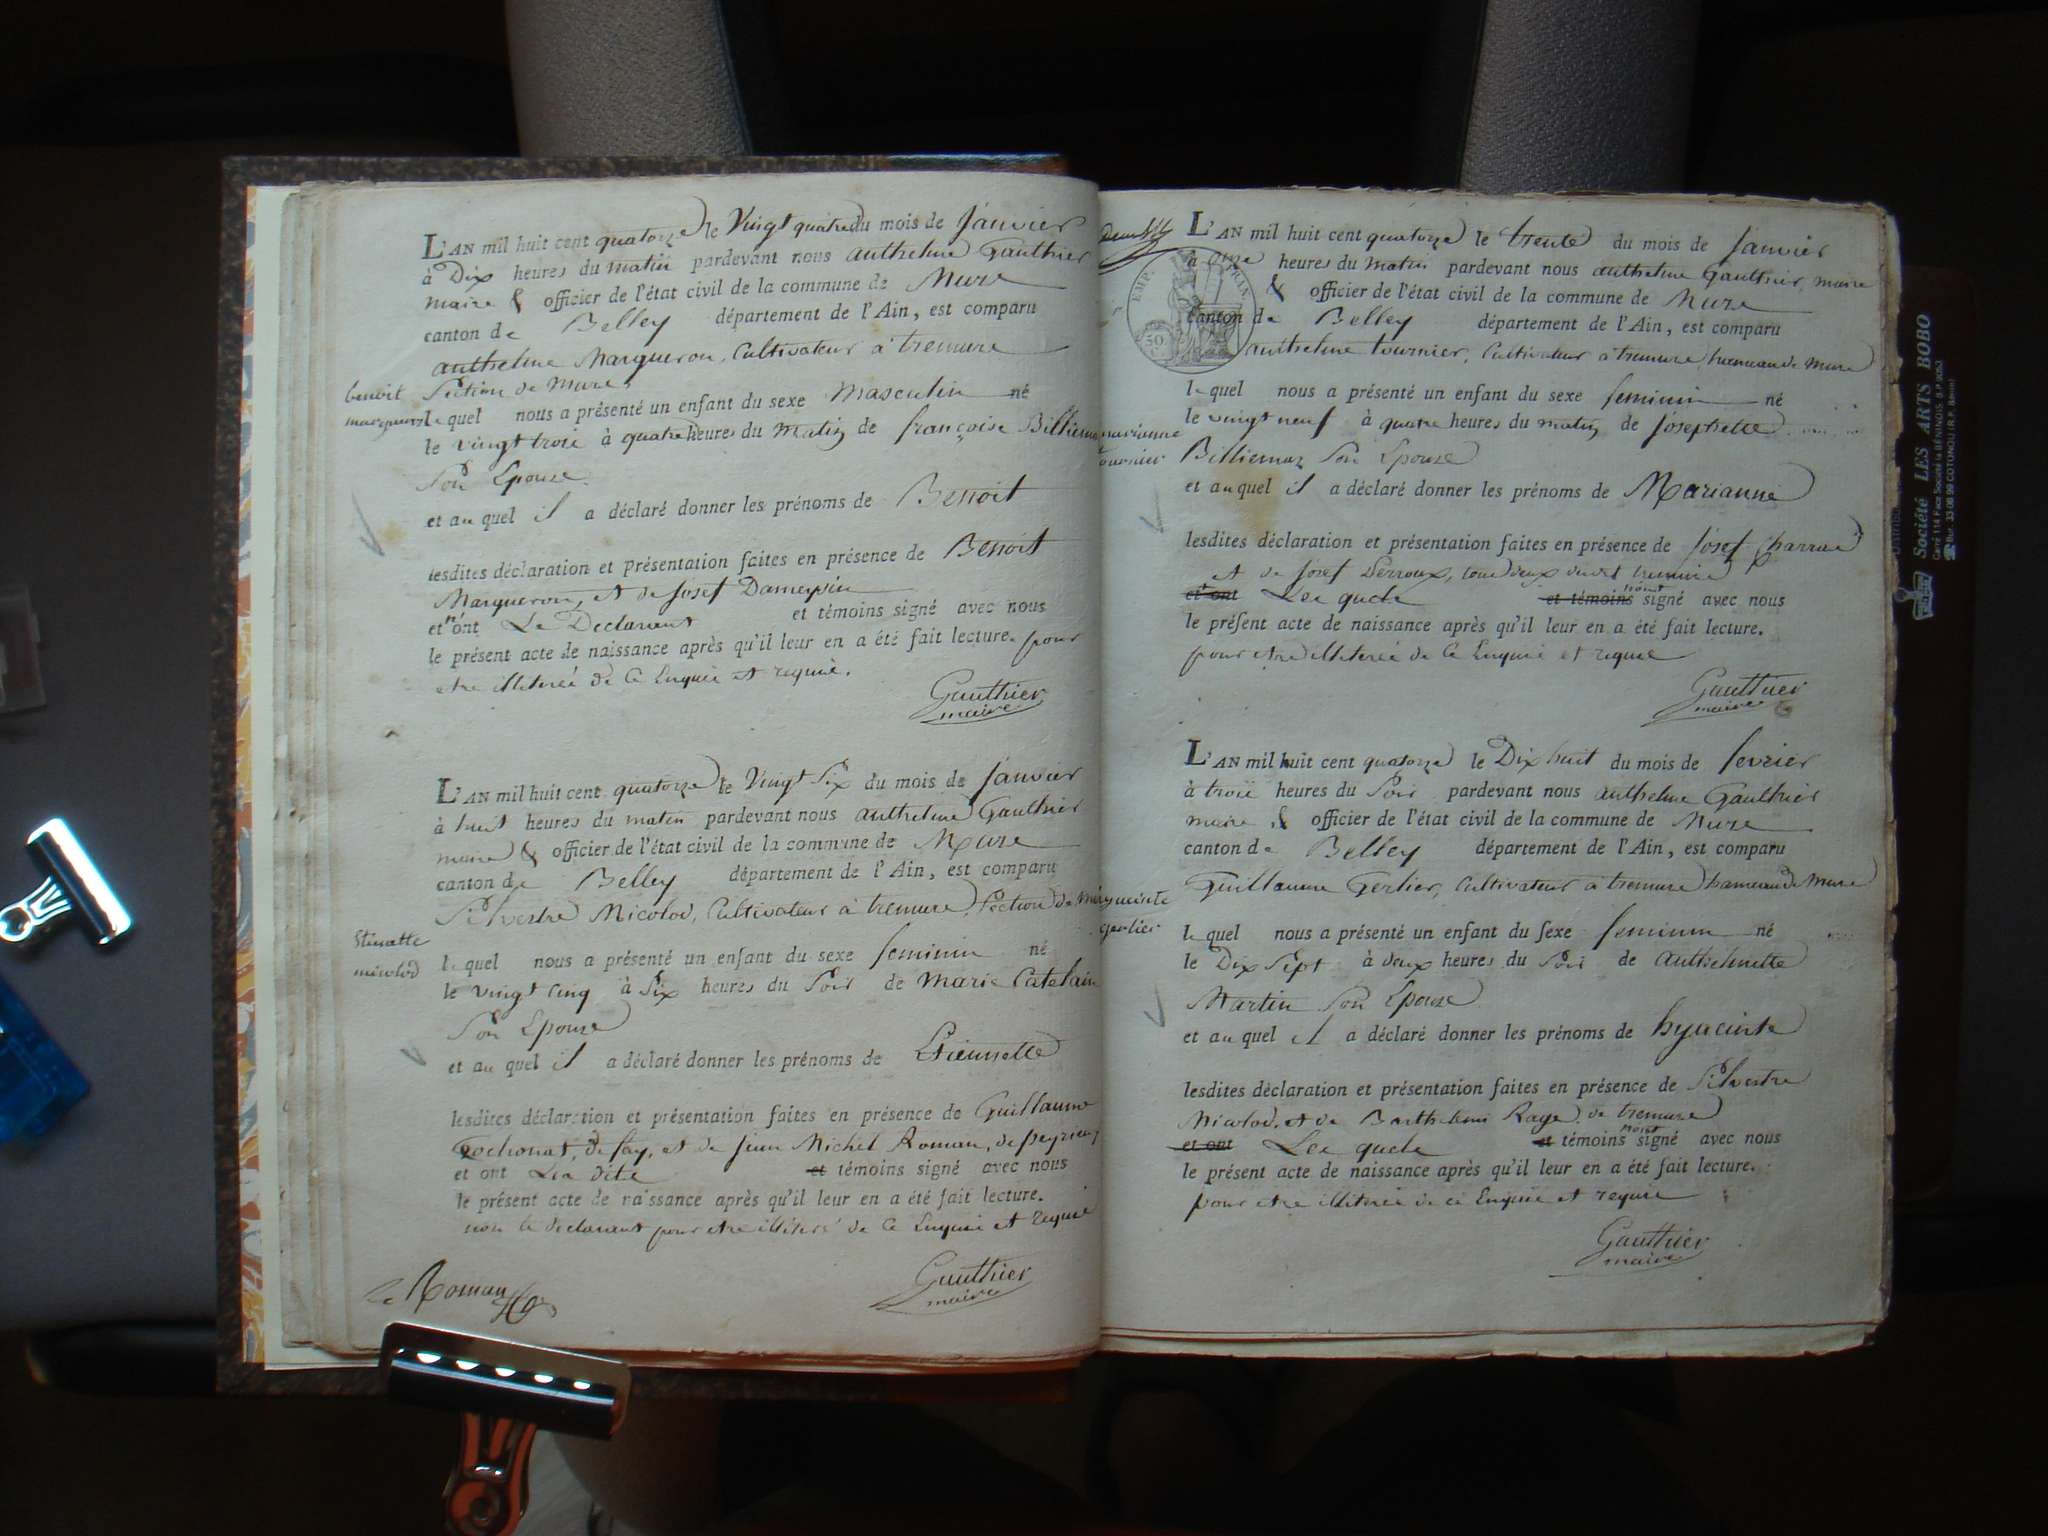 L'AN mil huit cent quatorze le Vingt quatre du mois de Janvier
à Dix heures du matin pardevant nous anthelme Gauthier
maire & officier de l'état civil de la commune de Mure
canton de Belley département de l'Ain, est comparu
anthelme Marqueron, Cultivateur à tremure
Section de Mure
benoit
marqueron
le quel nous a présenté un enfant du sexe masculin né
le vingt trois à quatre heures du matin de françoise Billiema
Son Epouse
et au quel il a déclaré donner les prénoms de Benoit
lesdites déclaration et présentation faites en présence de Benoit
Marqueron, et de Josef Dameysin
et n'ont Le Declarant et témoins signé avec nous
le présent acte de naissance après qu'il leur en a été fait lecture. pour
etre illiterés de ce Enquis et requis.
Gauthier
maire
L'AN mil huit cent quatorze le Vingt Six du mois de Janvier
à huit heures du matin pardevant nous anthelme Gauthier
maire & officier de l'état civil de la commune de Mure
canton de Belley département de l'Ain, est comparu
Silvestre Micolod, Cultivateur à tremure, Section de Mure
Etiennette
micolod
le quel nous a présenté un enfant du sexe feminin né
le vingt cinq à Six heures du Soir de Marie Catelain
Son Epouse
et au quel il a déclaré donner les prénoms de Etiennette
lesdites déclaration et présentation faites en présence de Guillaume
Cochonat, de fay, et de Jean Michel Roman, de peyrieu
et ont Les dits et témoins signé avec nous
le présent acte de naissance après qu'il leur en a été fait lecture.
non le declarant pour etre illiteré de ce Enquis et requis
Roman
Gauthier
maire
L'AN mil huit cent quatorze le trente du mois de Janvier
à onze heures du matin pardevant nous anthelme Gauthier, maire
& officier de l'état civil de la commune de Mure
canton de Belley département de l'Ain, est comparu
EMP. FRAN.
50
C.
anthelme tournier, Cultivateur à tremure, hameau de Mure
le quel nous a présenté un enfant du sexe feminin né
le vingt neuf à quatre heures du matin de Josephette
marianne
tournier
Billiemaz Son Epouse
et au quel il a déclaré donner les prénoms de Marianne
lesdites déclaration et présentation faites en présence de Josef Charrue
et de Josef Perroux, tous deux dudit tremure
et ont Les quels et témoins n'ont signé avec nous
le présent acte de naissance après qu'il leur en a été fait lecture.
pour etre illiterés de ce Enquis et requis
Gauthier
maire
L'AN mil huit cent quatorze le Dix huit du mois de fevrier
à trois heures du Soir pardevant nous anthelme Gauthier
maire & officier de l'état civil de la commune de Mure
canton de Belley département de l'Ain, est comparu
Guillaume Gerlier, Cultivateur à tremure, hameau de Mure
hyacinte
gerlier
le quel nous a présenté un enfant du sexe feminin né
le Dix Sept à deux heures du Soir de anthelmette
Martin Son Epouse
et au quel il a déclaré donner les prénoms de hyacinte
lesdites déclaration et présentation faites en présence de Silvestre
Micolod, et de Barthelemi Rage, de tremure
et ont Les quels et témoins n'ont signé avec nous
le présent acte de naissance après qu'il leur en a été fait lecture.
pour etre illiterés de ce Enquis et requis
Gauthier
maire
Société LES ARTS BOBO